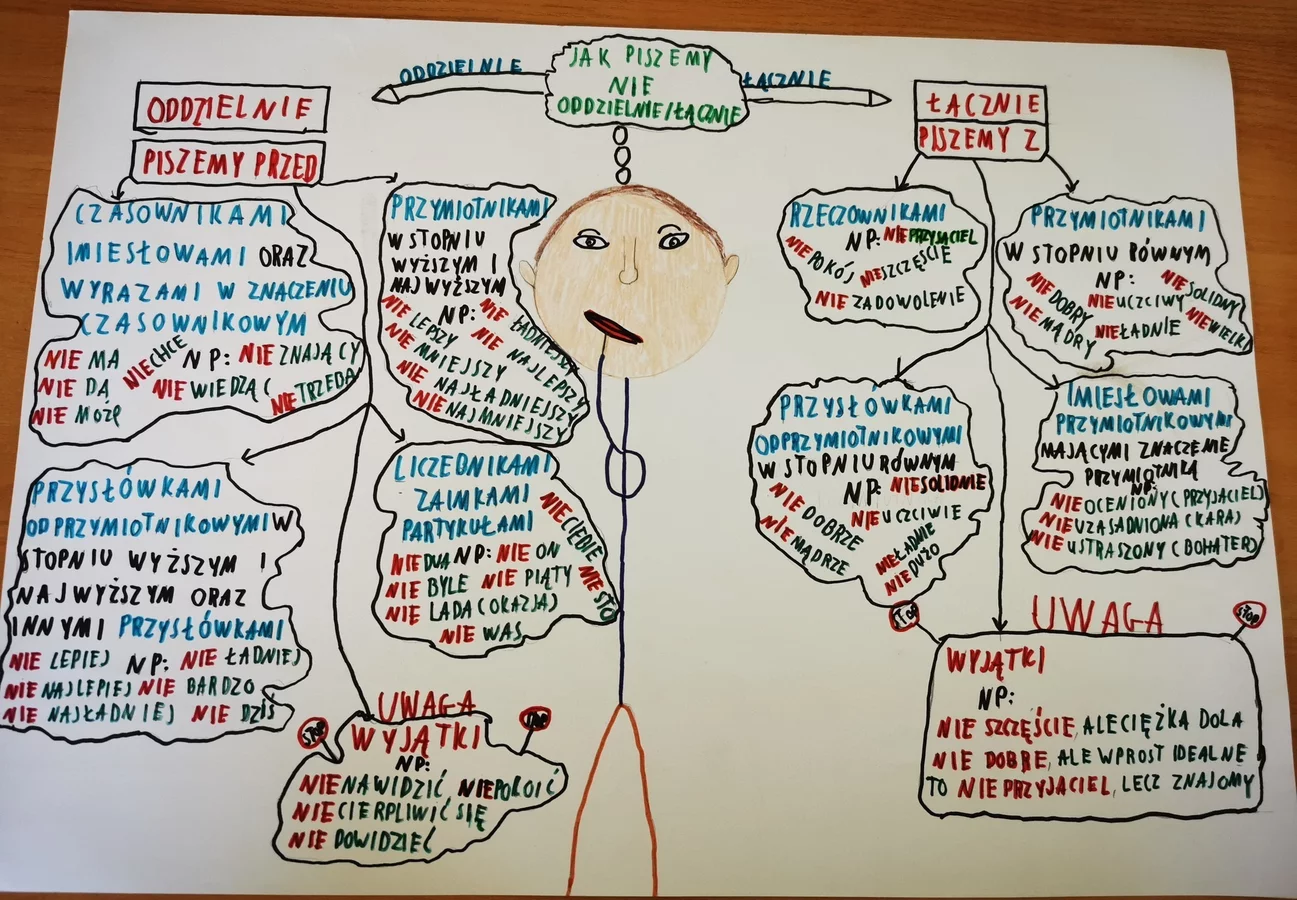 JAK PISZEMY
NIE
ODDZIELNIE/ŁĄCZNIE
ODDZIELNIE
ŁĄCZNIE
ODDZIELNIE
PISZEMY PRZED
CZASOWNIKAMI
IMIESŁOWAMI ORAZ
WYRAZAMI W ZNACZENIU
CZASOWNIKOWYM
NIE MA
NIE CHCE
NP: NIE ZNAJĄCY
NIE DA
NIE WIEDZĄC
NIE TRZEBA
NIE MOŻE
PRZYMIOTNIKAMI
W STOPNIU
WYŻSZYM I
NAJWYŻSZYM
NP:
NIE ŁADNIEJSZY
NIE LEPSZY
NIE NAJLEPSZY
NIE MNIEJSZY
NIE NAJŁADNIEJSZY
NIE NAJMNIEJSZY
PRZYSŁÓWKAMI
ODPRZYMIOTNIKOWYMI W
STOPNIU WYŻSZYM I
NAJWYŻSZYM ORAZ
INNYMI PRZYSŁÓWKAMI
NIE LEPIEJ NP: NIE ŁADNIEJ
NIE NAJLEPIEJ NIE BARDZO
NIE NAJŁADNIEJ NIE DZIŚ
LICZEBNIKAMI
ZAIMKAMI
PARTYKUŁAMI
NIE CIEBIE
NIE DWA NP: NIE ON
NIE BYLE NIE PIĄTY
NIE STO
NIE LADA (OKAZJA)
NIE WAS
UWAGA
STOP
STOP
WYJĄTKI
NP:
NIENAWIDZIĆ, NIEPOKOIĆ
NIECIERPLIWIĆ SIĘ
NIE DOWIDZIEĆ
ŁĄCZNIE
PISZEMY Z
RZECZOWNIKAMI
NP: NIEPRZYJACIEL
NIEPOKÓJ
NIESZCZĘŚCIE
NIE ZADOWOLENIE
PRZYMIOTNIKAMI
W STOPNIU RÓWNYM
NP:
NIESOLIDNY
NIEDOBRY
NIEUCZCIWY
NIEWIELKI
NIE MĄDRY
NIEŁADNIE
PRZYSŁÓWKAMI
ODPRZYMIOTNIKOWYMI
W STOPNIU RÓWNYM
NP: NIESOLIDNIE
NIE DOBRZE
NIEUCZCIWIE
NIE MĄDRZE
NIEŁADNIE
NIE DUŻO
IMIESŁOWAMI
PRZYMIOTNIKOWYMI
MAJĄCYMI ZNACZENIE
PRZYMIOTNIKA
NP:
NIEOCENIONY (PRZYJACIEL)
NIEUZASADNIONA (KARA)
NIEUSTRASZONY (BOHATER)
UWAGA
STOP
STOP
WYJĄTKI
NP:
NIE SZCZĘŚCIE, ALE CIĘŻKA DOLA
NIE DOBRE, ALE WPROST IDEALNE
TO NIE PRZYJACIEL, LECZ ZNAJOMY